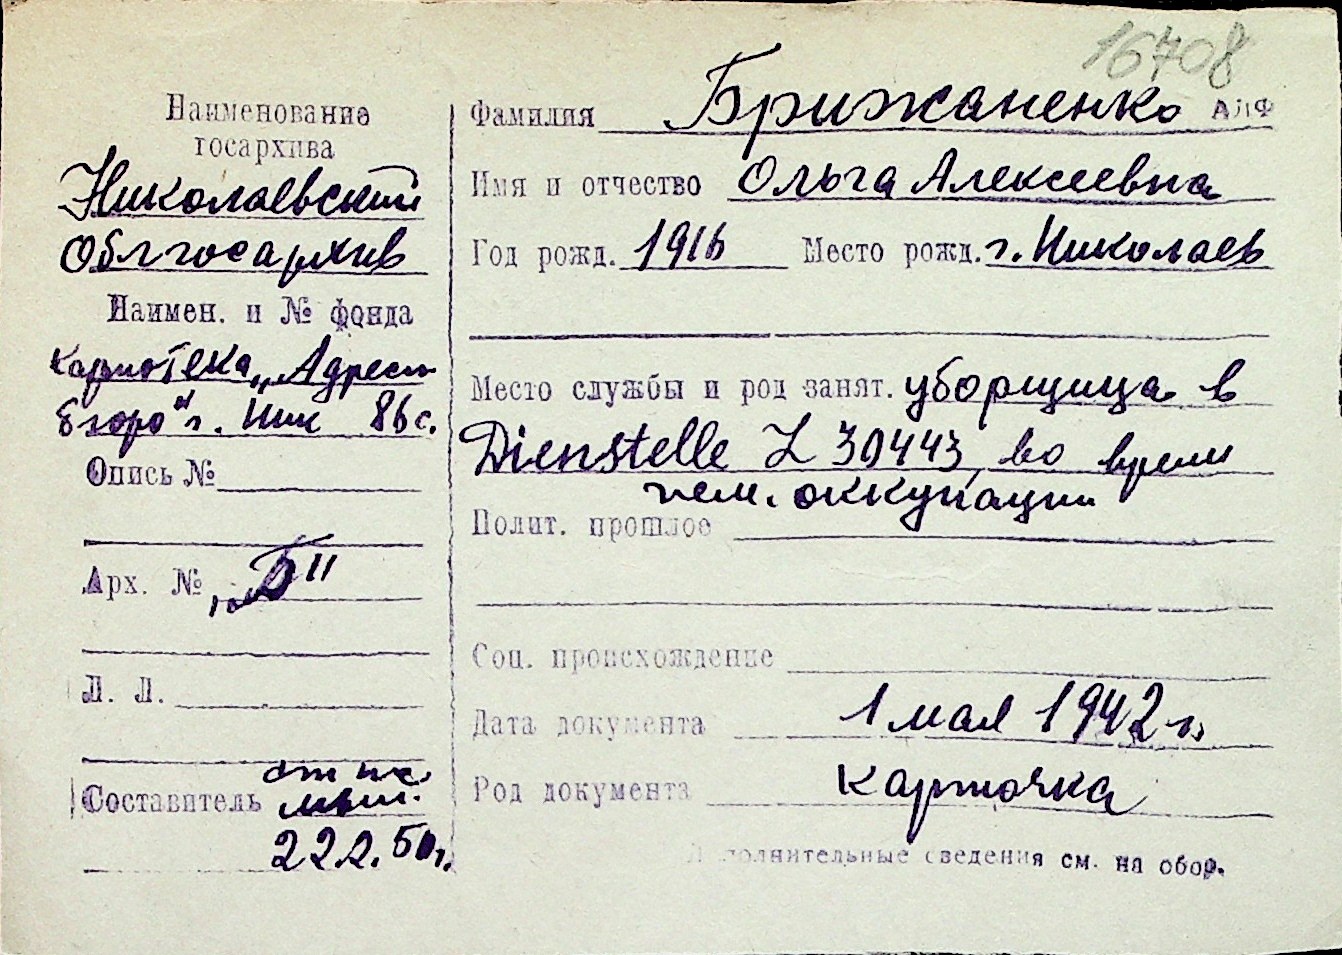 16708
Наименование
госархива
Николаевский
Облгосархив
Наимен. и № фонда
картотека „Адресн
бюро" г. Ник 86 с.
Опись №
Арх. № „Б"
Л. Л.
Составитель
22.2.50г.
Фамилия Брижаненко АЛФ
Имя и отчество Ольга Алексеевна
Год рожд. 1916 Место рожд. г. Николаев
Место службы и род занят. уборщица в
Dienstelle L 30443 во время
нем. оккупации
Полит. прошлое
Соц. происхождение
Дата документа 1 мая 1942 г.
Род документа карточка
Дополнительные сведения см. на обор.